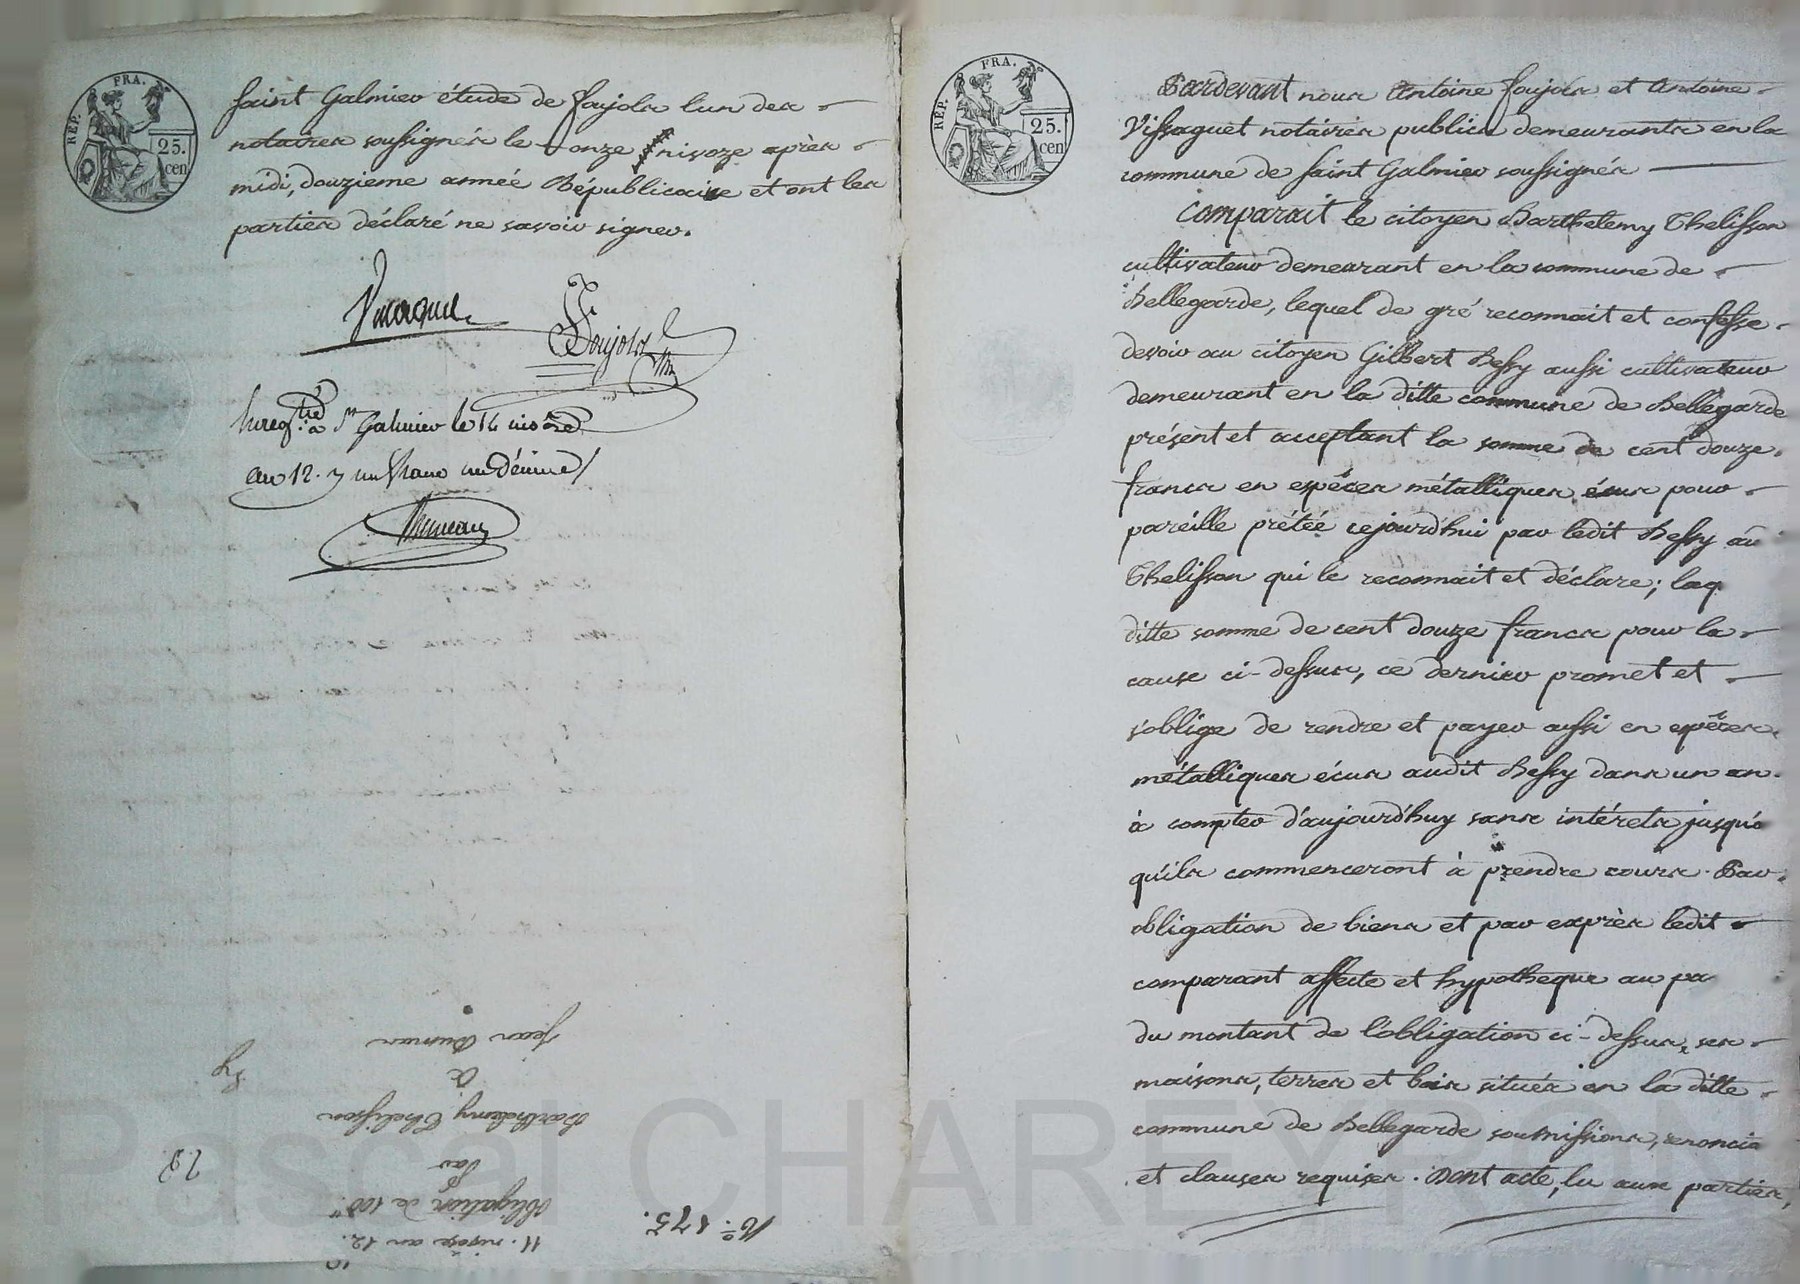 RÉP. FRA.
25.
cen
saint Galmier étude de foujols l'un des
notaires soussignés le onze nivoze après
midi, douzieme année Républicaine et ont les
parties déclaré ne savoir signer.
foujols
Enregtré à St Galmier le 14 nivose
an 12. un franc un décime
Jean
à
Barthelemy Thelisson
par
obligation de
11. nivose an 12.
No. 175.
RÉP. FRA.
25.
cen
Pardevant nous Antoine foujols et Antoine
Vissaguet notaires publics demeurants en la
commune de saint Galmier soussignés
Comparait le citoyen Barthelemy Thelisson
cultivateur demeurant en la commune de
Bellegarde, lequel de gré reconnait et confesse
devoir au citoyen Gilbert Bessy aussi cultivateur
demeurant en la ditte commune de Bellegarde
présent et acceptant la somme de cent douze
francs en espéces métalliques écus pour
pareille prétée cejourd'hui par ledit Bessy au
Thelisson qui le reconnait et déclare; laq
ditte somme de cent douze francs pour la
cause ci-dessus, ce dernier promet et
s'oblige de rendre et payer aussi en espéces
métalliques écus audit Bessy dans un an
à compter d'aujourd'huy sans intérets jusqu'à
qu'ils commenceront à prendre cours. Par
obligation de biens et par exprès ledit
comparant affecte et hypotheque au pa
du montant de l'obligation ci-dessus, ses
maisons, terres et bois situés en la ditte
commune de Bellegarde soumissions, renoncia
et clauses requises. Dont acte, lu aux parties,
Pascal CHAREYRON